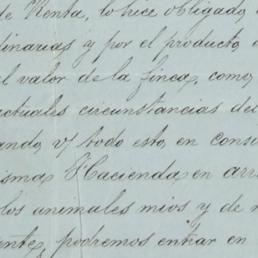 de Renta, lo hice obligado
dinarias y por el producto
el valor de la finca, como
actuales circunstancias del
ando, y todo esto, en cons
isma Hacienda en arr
los animales mios y de m
ente, podremos entrar en